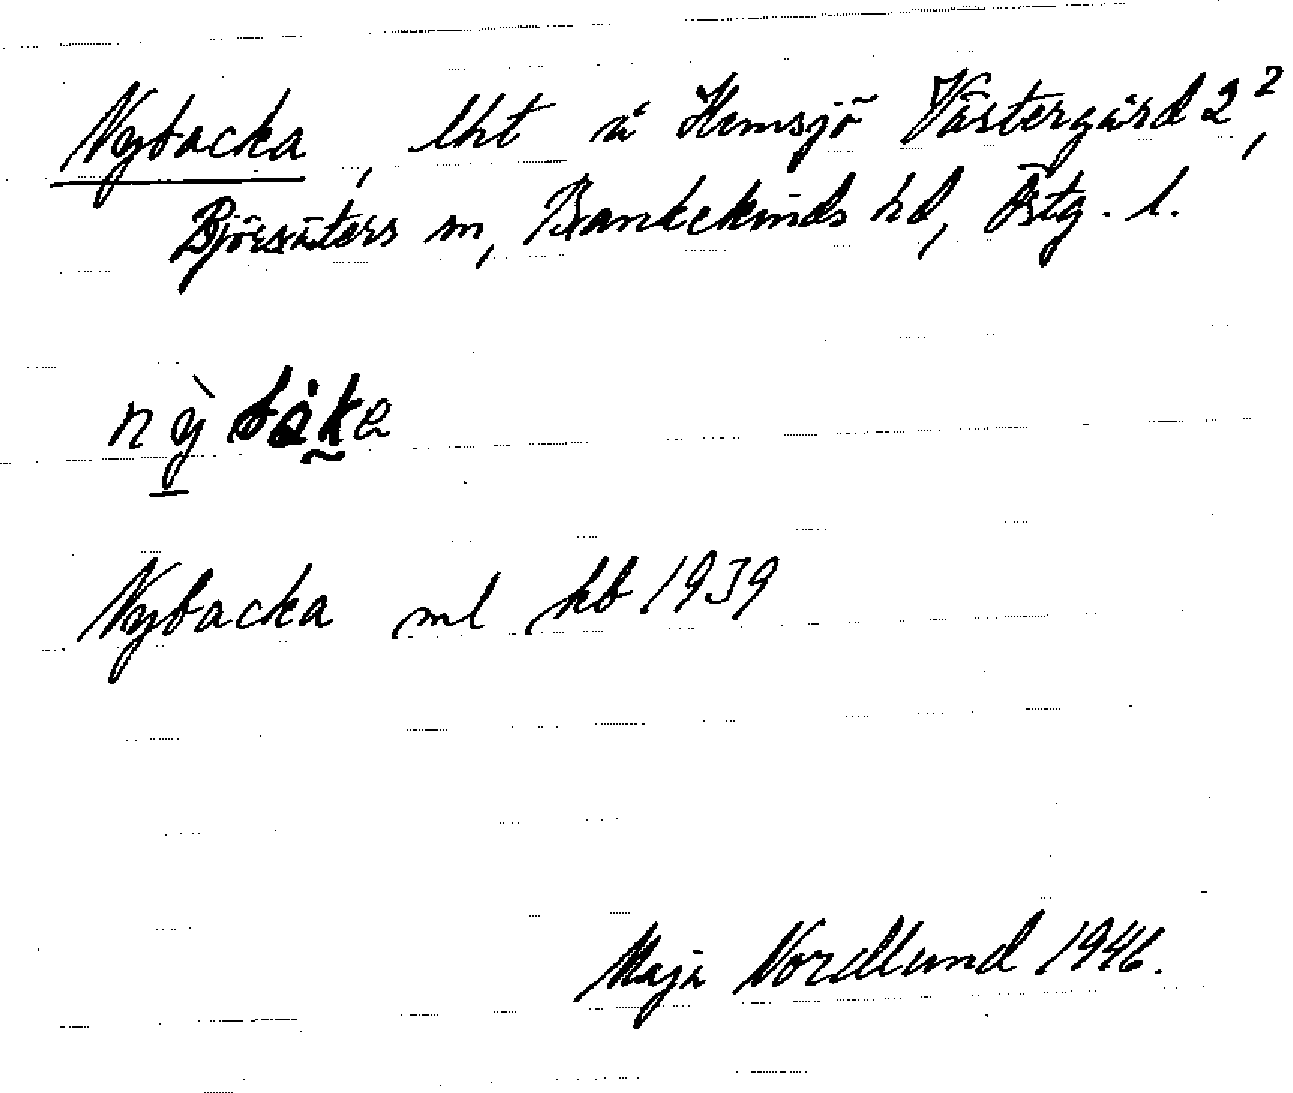 Nybacka, lht å Hemsjö Västergård 2²,
Björsäters sn, Bankekinds hd, Östg. l.
Nybacka ml kb 1939
Maja Nordlund 1946.